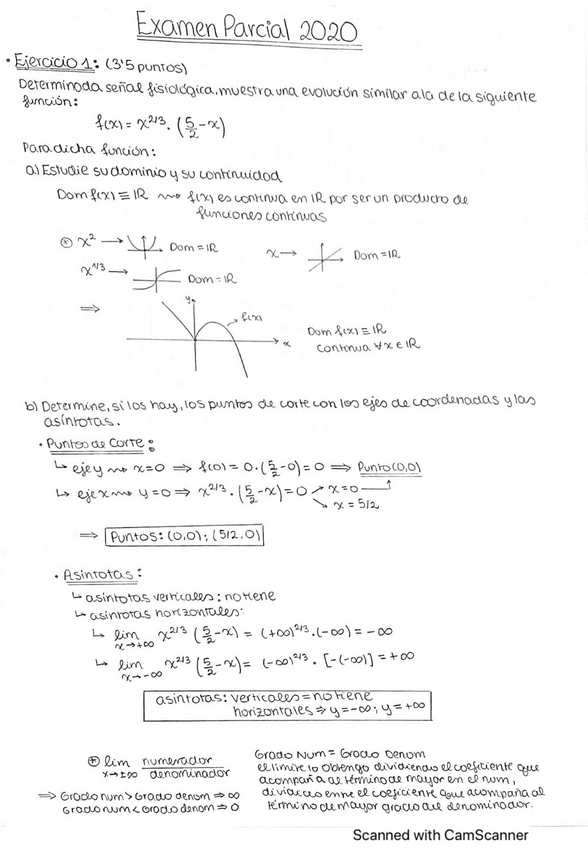 Examen Parcial 2020
• Ejercicio 1: (3'5 puntos)
Determinada señal fisiológica, muestra una evolución similar a la de la siguiente
función:
f(x) = x^2/3 · (5/2 - x)
Para dicha función:
a) Estudie su dominio y su continuidad
Dom f(x) ≡ IR ⇝ f(x) es continua en IR por ser un producto de
funciones continuas
⊛ x^2 → Dom = IR x → Dom = IR
x^1/3 → Dom = IR
⇒
y
f(x)
x
Dom f(x) ≡ IR
Continua ∀x ∈ IR
b) Determine, si los hay, los puntos de corte con los ejes de coordenadas y las
asíntotas.
• Puntos de Corte:
↳ eje y ⇝ x=0 ⇒ f(0) = 0·(5/2 - 0) = 0 ⇒ Punto (0,0)
↳ eje x ⇝ y=0 ⇒ x^2/3 · (5/2 - x) = 0 ↗ x=0
↘ x = 5/2
⇒ Puntos: (0,0); (5/2,0)
• Asíntotas:
↳ asíntotas verticales: no tiene
↳ asíntotas horizontales:
↳ lim x→+∞ x^2/3 (5/2 - x) = (+∞)^2/3 · (-∞) = -∞
↳ lim x→-∞ x^2/3 (5/2 - x) = (-∞)^2/3 · [-(-∞)] = +∞
asíntotas: verticales = no tiene
horizontales ⇒ y=-∞; y=+∞
⊛ lim x→±∞ numerador / denominador
⇒ Grado num > Grado denom ⇒ ∞
Grado num < Grado denom ⇒ 0
Grado Num = Grado Denom
el límite lo obtengo dividiendo el coeficiente que
acompaña al término de mayor en el num,
dividirlo entre el coeficiente que acompaña al
término de mayor grado del denominador.
Scanned with CamScanner